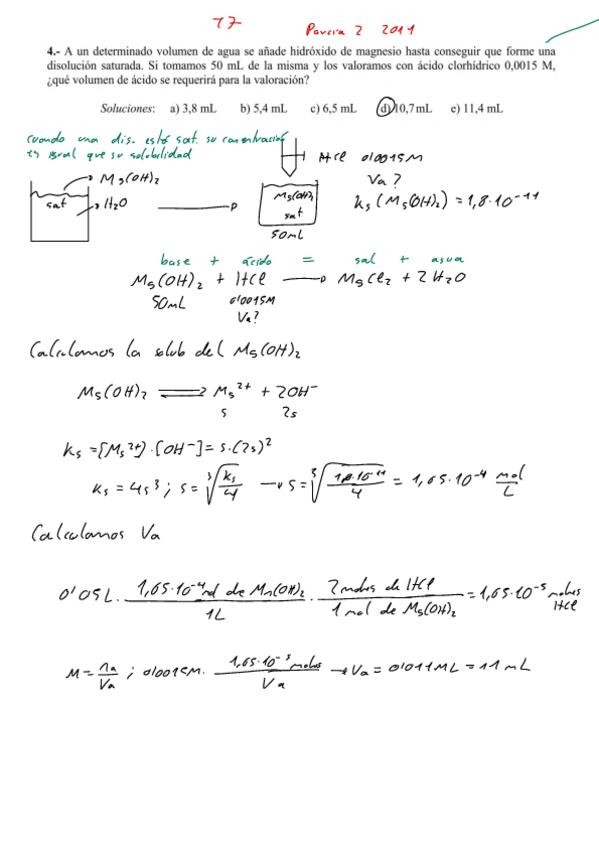 17 Parcia 2 2011
4.- A un determinado volumen de agua se añade hidróxido de magnesio hasta conseguir que forme una
disolución saturada. Si tomamos 50 mL de la misma y los valoramos con ácido clorhídrico 0,0015 M,
¿qué volumen de ácido se requerirá para la valoración?
Soluciones: a) 3,8 mL b) 5,4 mL c) 6,5 mL d) 10,7 mL e) 11,4 mL
cuando una dis. está sat. su concentración
es igual que su solubilidad
Mg(OH)₂
sat H₂O
HCl 0'0015M
Va?
Mg(OH)₂
sat
50mL
Ks (Mg(OH)₂) = 1,8·10⁻¹¹
base + ácido = sal + agua
Mg(OH)₂ + HCl → MgCl₂ + 2H₂O
50mL 0'0015M
Va?
Calculamos la solub del Mg(OH)₂
Mg(OH)₂ ⇌ Mg²⁺ + 2OH⁻
s 2s
Ks = [Mg²⁺]·[OH⁻] = s·(2s)²
Ks = 4s³ ; s = ∛(Ks/4) → s = ∛(1,8·10⁻¹¹/4) = 1,65·10⁻⁴ mol/L
Calculamos Va
0'05L · 1,65·10⁻⁴ mol de Mg(OH)₂/1L · 2 moles de HCl/1 mol de Mg(OH)₂ = 1,65·10⁻⁵ moles HCl
M = na/Va ; 0'0015M · 1,65·10⁻⁵ moles/Va → Va = 0'011ML = 11 mL